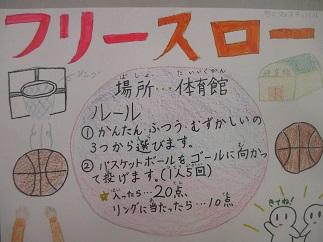 フリースロー
場所…体育館
ばしょ
たいいくかん
ルール
①かんたん、ふつう、むずかしいの
3つから選びます。
②バスケットボールをゴールに向かっ
て投げます。(1人5回)
入ったら…20点、
リングに当たったら…10点
きてね!